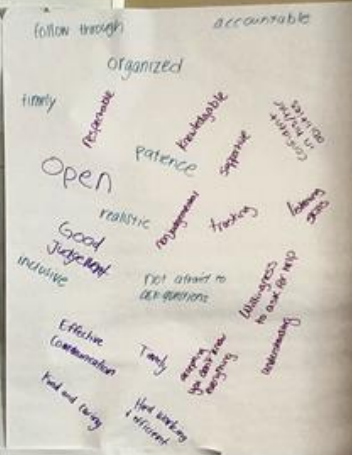 follow through
accountable
organized
timely
respectable
knowledgable
confident
in his/her
abilities
patience
supportive
open
realistic
nonjudgemental
trusting
listening
skills
Good
Judgement
inclusive
not afraid to
ask questions
Willingness
to ask for help
Effective
Communication
Timely
accepting
you don't know
everything
understanding
Kind and caring
Hard working
+ efficient